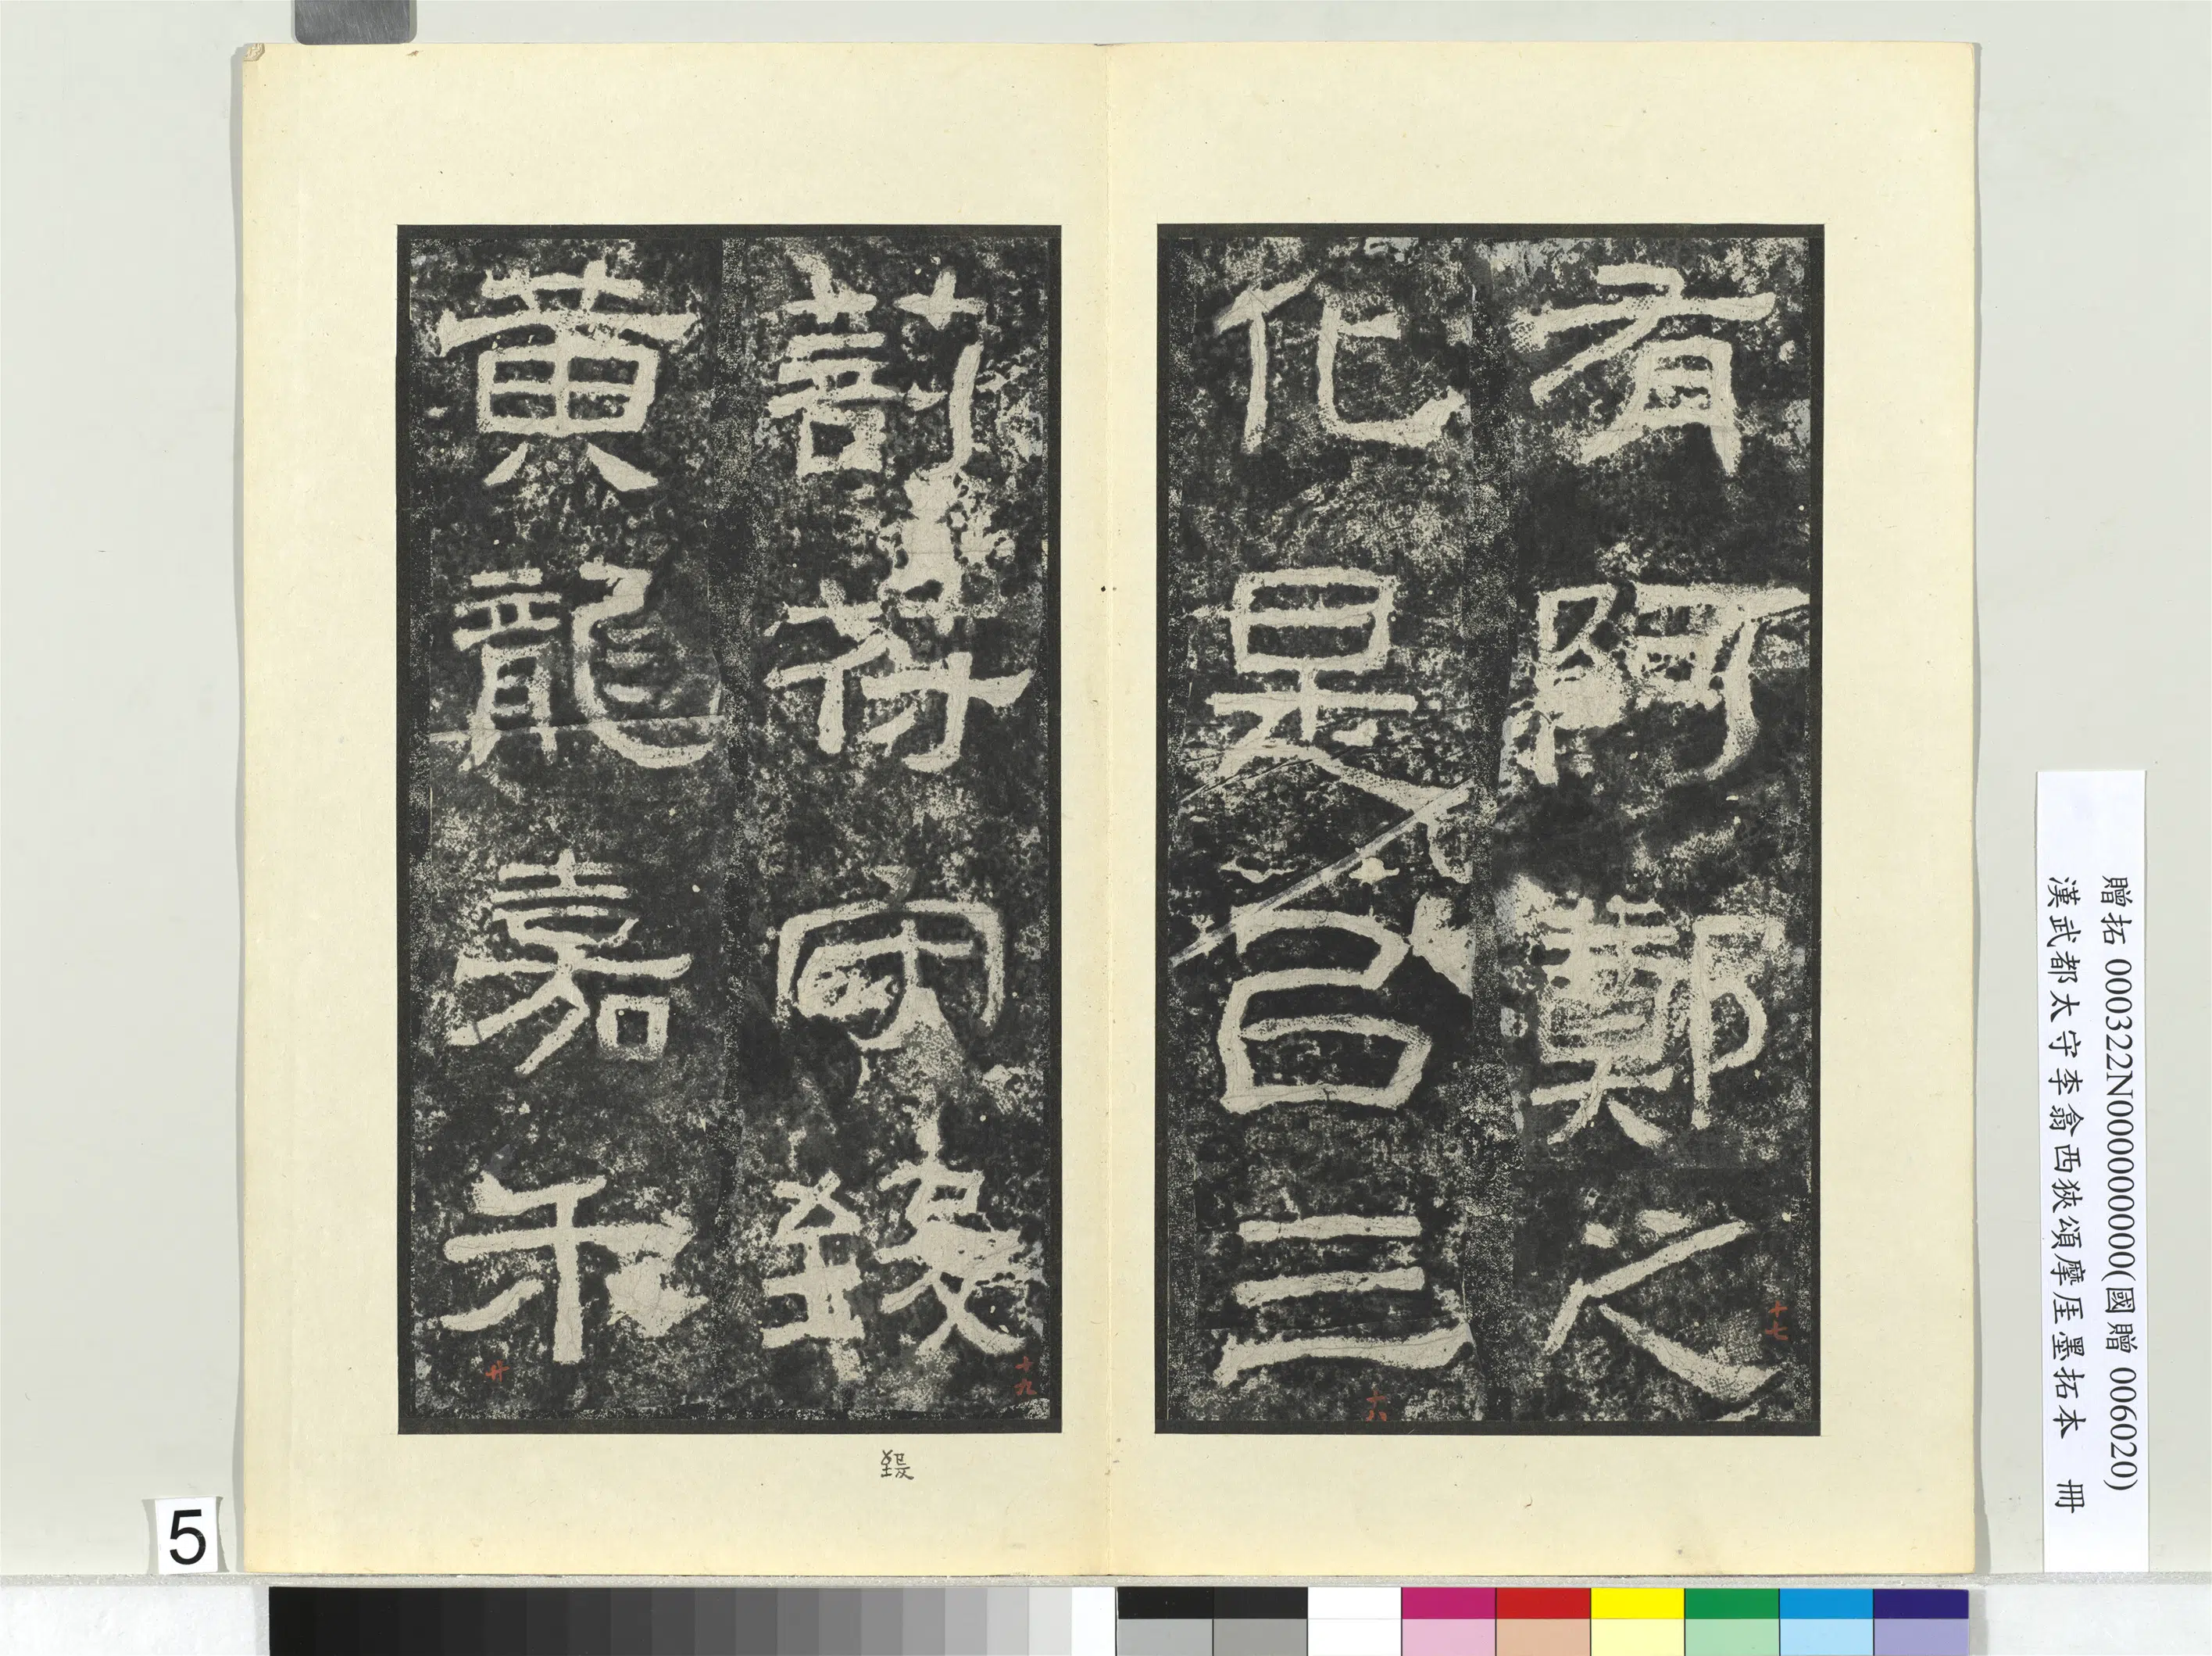 有阿鄭之
十七
化是㠯三
十八
剖符守致
十九
黃龍嘉禾
廿
5
贈拓 000322N000000000(國贈 006020)
漢武都太守李翕西狹頌摩厓墨拓本 冊